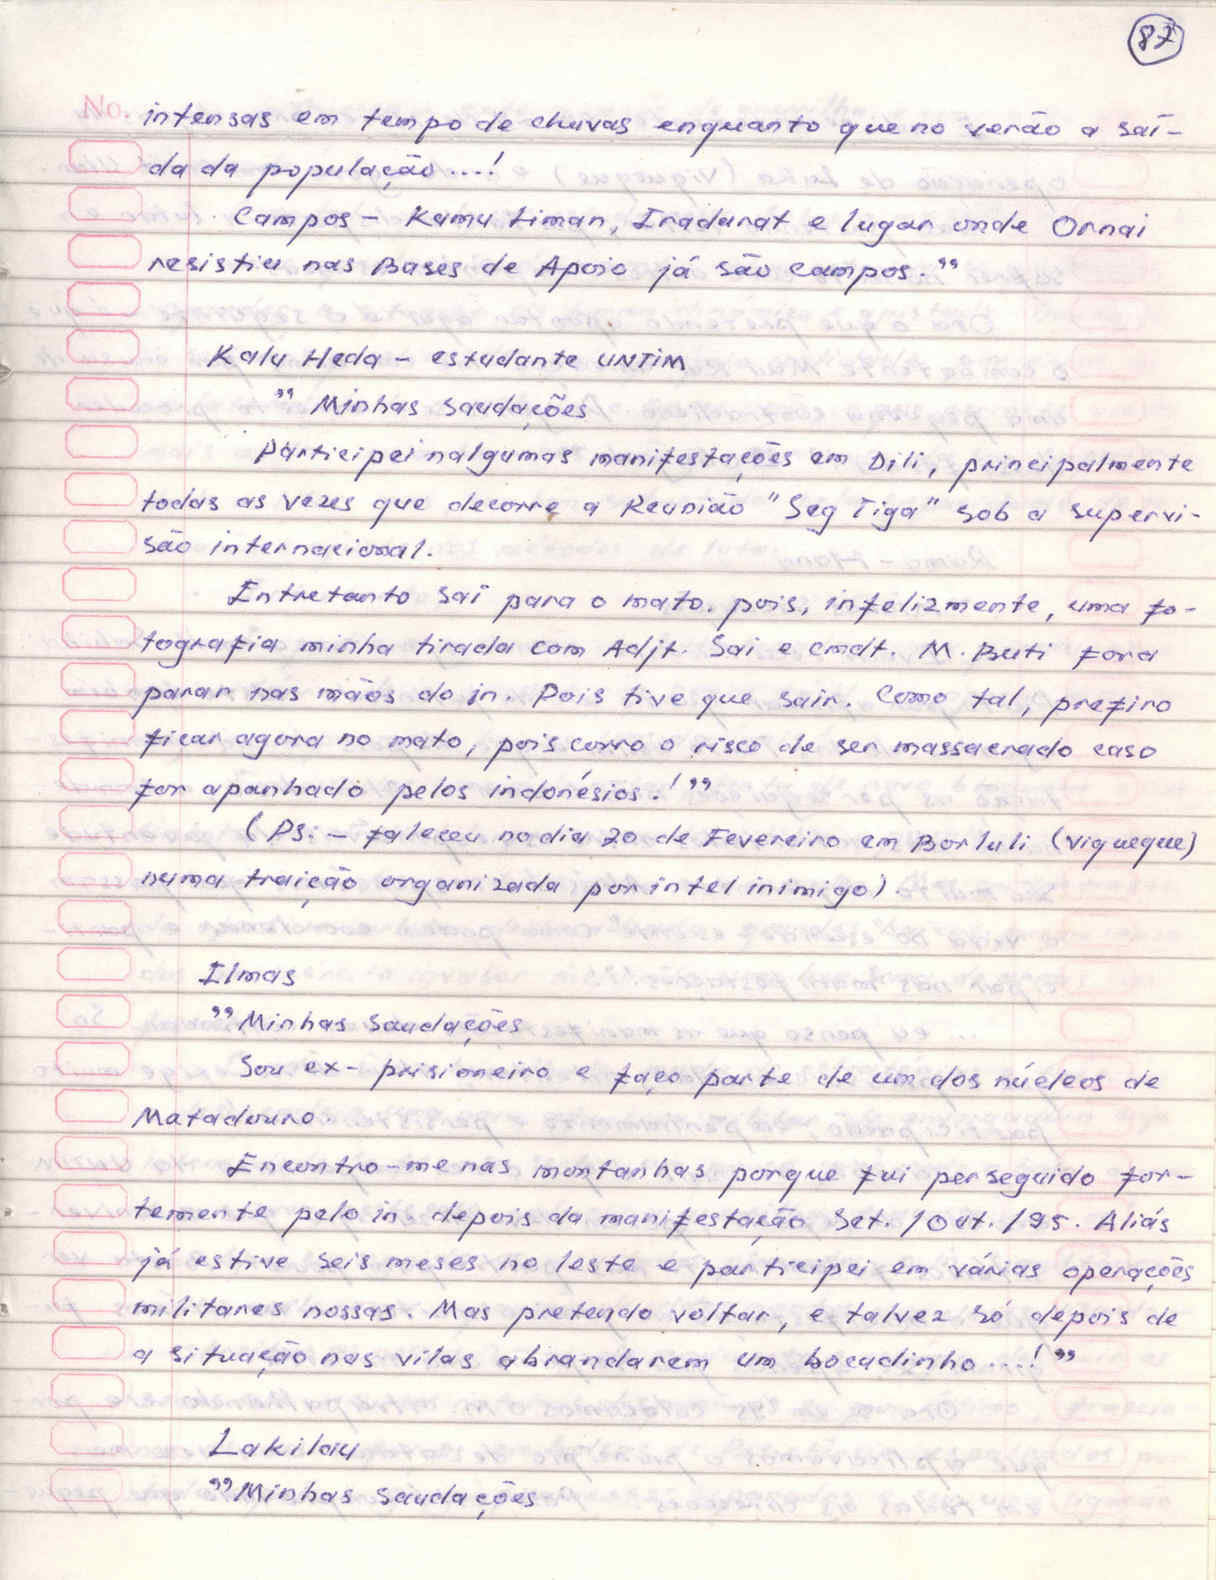 87
No. intensas em tempo de chuvas enquanto que no verão a saí-
da da população....!
Campos - Kamu Liman, Iradarat e lugar onde Ornai
resistiu nas Bases de Apoio já são campos."
Kalu Heda - estudante UNTIM
" Minhas saudações
Participei nalgumas manifestações em Dili, principalmente
todas as vezes que decorre a Reunião "Seg Tiga" sob a supervi-
são internacional.
Entretanto saí para o mato. pois, infelizmente, uma fo-
tografia minha tirada com Adjt. Sai e cmdt. M. Buti fora
parar nas mãos do in. Pois tive que sair. Como tal, prefiro
ficar agora no mato, pois corro o risco de ser massacrado caso
for apanhado pelos indonésios.!"
(PS: - faleceu no dia 20 de Fevereiro em Borluli (Viqueque)
numa traição organizada por intel inimigo).
Ilmas
" Minhas saudações
Sou ex-prisioneiro e faço parte de um dos núcleos de
Matadouro.
Encontro-me nas montanhas porque fui perseguido for-
temente pelo in. depois da manifestação Set./Out./95. Aliás
já estive seis meses no leste e participei em várias operações
militares nossas. Mas pretendo voltar, e talvez só depois de
a situação nas vilas abrandarem um bocadinho....!"
Lakilau
" Minhas saudações